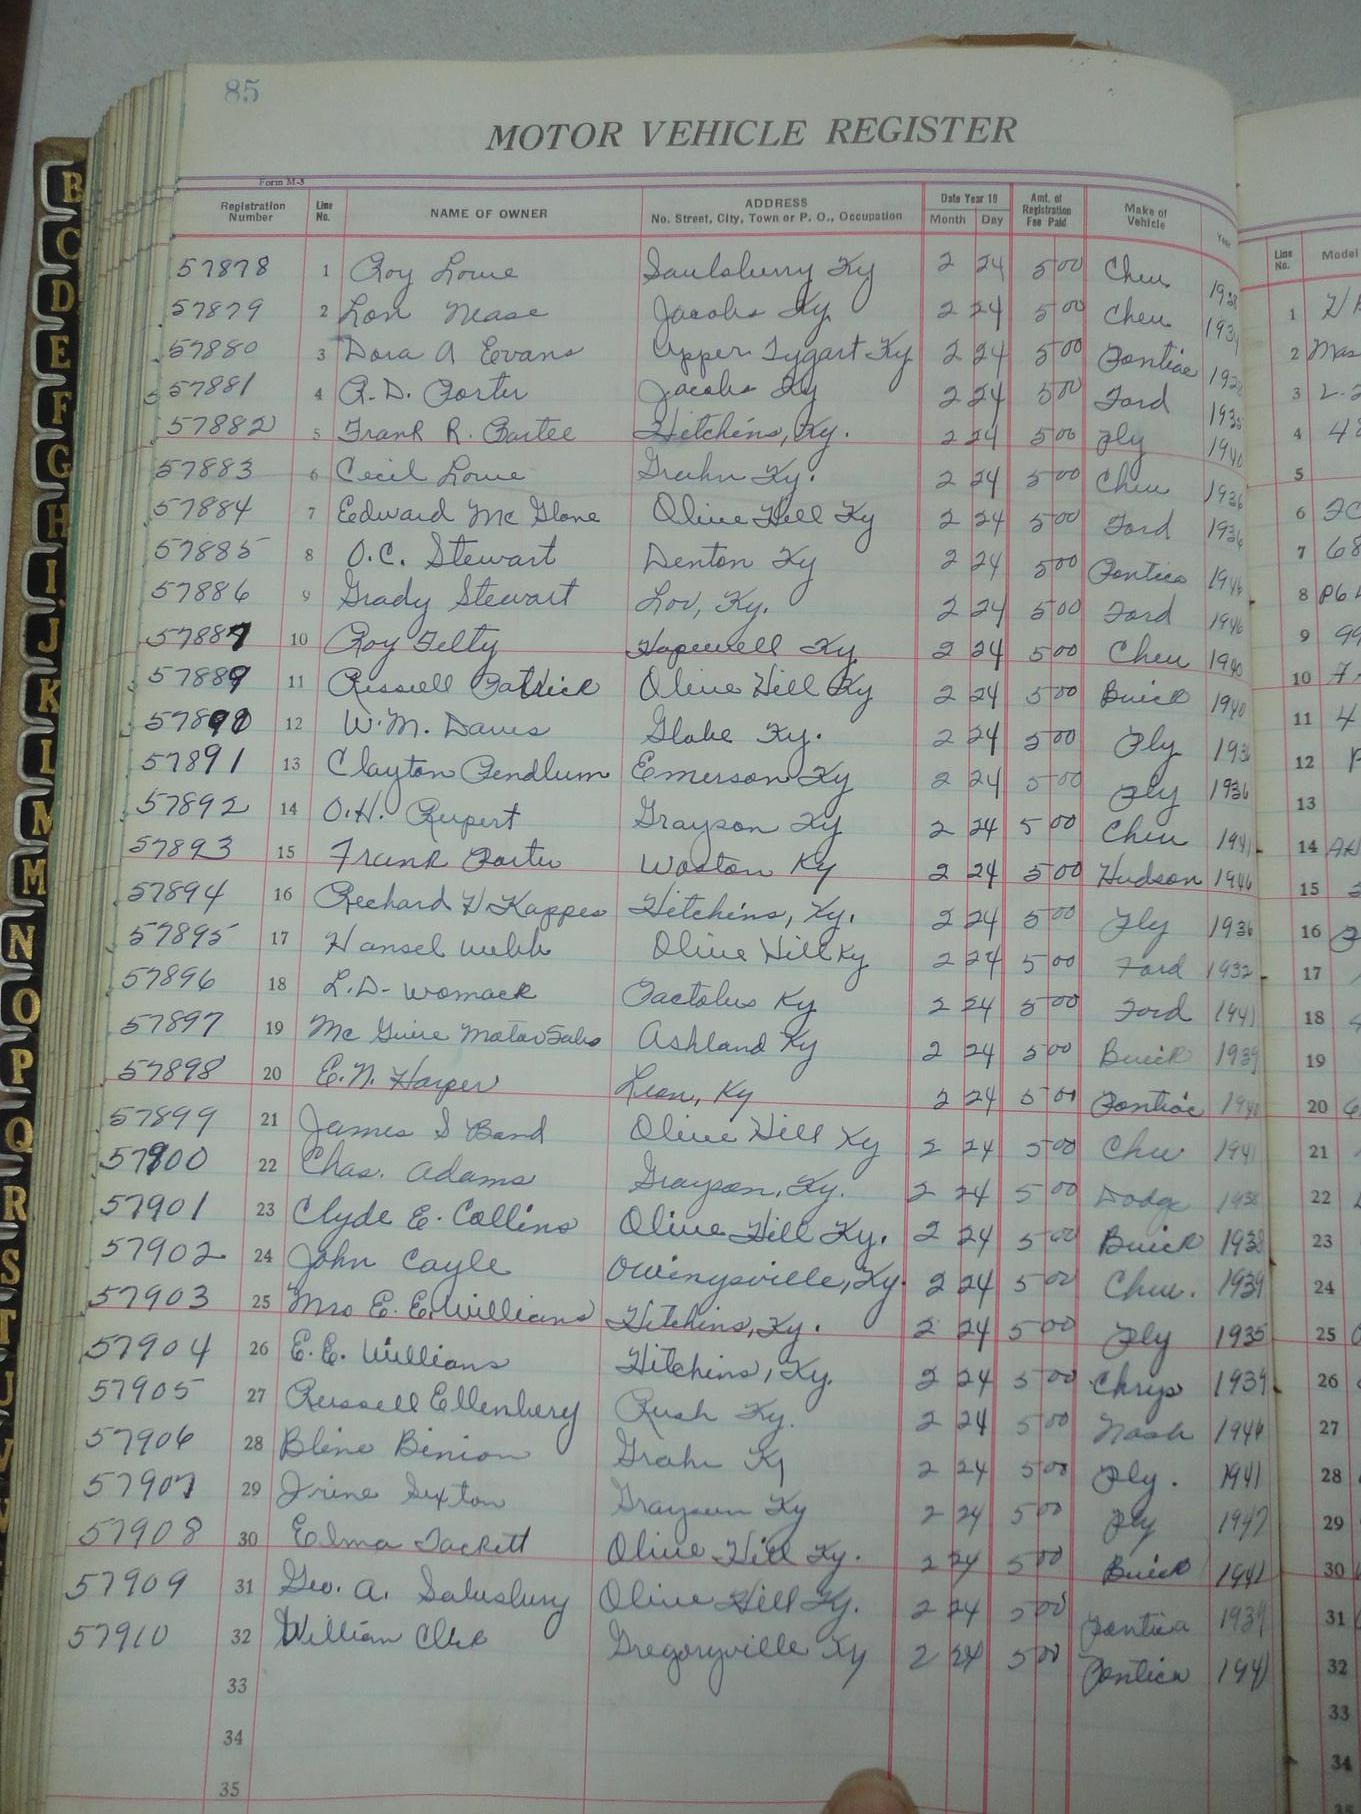 85
MOTOR VEHICLE REGISTER
Form M-5
Registration Number Line No. NAME OF OWNER ADDRESS No. Street, City, Town or P. O., Occupation Date Year 19 Month Day Amt. of Registration Fee Paid Make of Vehicle Year Line No. Model
57878 1 Roy Lowe Saulsberry Ky 2 24 5 00 Chev 1 
57879 2 Lon Mase Jacobs Ky 2 24 5 00 Chev 2 Mas
57880 3 Dora A Evans Upper Tygart Ky 2 24 5 00 Pontiac 3 L-2
57881 4 R.D. Porter Jacobs Ky 2 24 5 00 Ford 4
57882 5 Frank R. Partee Hitchins, Ky. 2 24 5 00 Ply 1940 5
57883 6 Cecil Lowe Grahn Ky. 2 24 5 00 Chev 1936 6
57884 7 Edward Mc Glone Olive Hill Ky 2 24 5 00 Ford 1936 7 68
57885 8 O.C. Stewart Denton Ky 2 24 5 00 Pontica 1946 8
57886 9 Grady Stewart Lov, Ky. 2 24 5 00 Ford 1946 9
57887 10 Roy Felty Hopewell Ky 2 24 5 00 Chev 1940 10
57889 11 Russell Patrick Olive Hill Ky 2 24 5 00 Buick 1940 11 4
57890 12 W.M. Davis Globe Ky. 2 24 5 00 Ply 1936 12
57891 13 Clayton Pendlum Emerson Ky 2 24 5 00 Ply 1936 13
57892 14 O.H. Rupert Grayson Ky 2 24 5 00 Chev 1941 14
57893 15 Frank Porter Waston Ky 2 24 5 00 Hudson 1946 15
57894 16 Rechard H Kappes Hitchins, Ky. 2 24 5 00 Ply 1936 16
57895 17 Hansel Webb Olive Hill Ky 2 24 5 00 Ford 1932 17
57896 18 L.D. Womack Pactolus Ky 2 24 5 00 Ford 1941 18
57897 19 Mc Guire Motor Sales Ashland Ky 2 24 5 00 Buick 1939 19
57898 20 E.N. Harper Leon, Ky 2 24 5 00 Pontiac 1940 20
57899 21 James S Bond Olive Hill Ky 2 24 5 00 Chev 1941 21
57900 22 Chas. Adams Grayson, Ky. 2 24 5 00 Dodge 1938 22
57901 23 Clyde E. Collins Olive Hill Ky. 2 24 5 00 Buick 1938 23
57902 24 John Cayle Owingsville, Ky. 2 24 5 00 Chev. 1939 24
57903 25 Mrs E. E. Williams Hitchins, Ky. 2 24 5 00 Ply 1935 25
57904 26 E.E. Williams Hitchins, Ky. 2 24 5 00 Chrys 1939 26
57905 27 Russell Ellenbery Rush Ky. 2 24 5 00 Nash 1946 27
57906 28 Bline Binion Grahn Ky 2 24 5 00 Ply. 1941 28
57907 29 Irine Sexton Grayson Ky 2 24 5 00 Ply 1947 29
57908 30 Elma Tackett Olive Hill Ky. 2 24 5 00 Buick 1941 30
57909 31 Geo. A. Salusbury Olive Hill Ky. 2 24 5 00 Pontica 1939 31
57910 32 William Clik Gregoryville Ky 2 24 5 00 Pontica 1941 32
33 33
34 34
35
B
C
D
E
F
G
H
I
J
K
L
M
M
N
O
P
Q
R
S
T
U
V